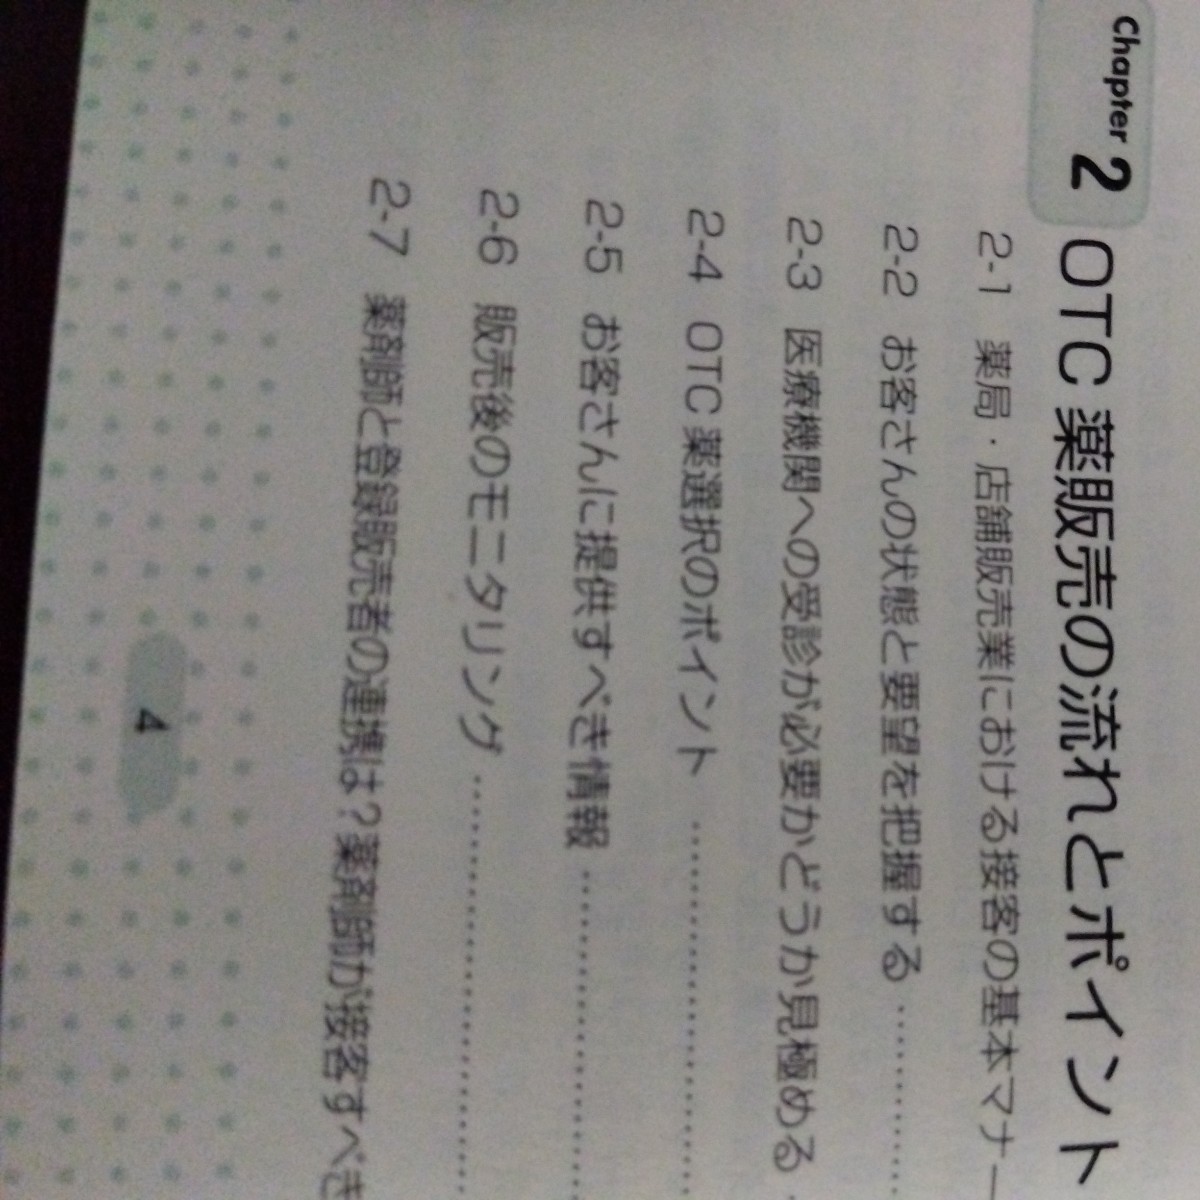 Chapter 2 OTC 薬販売の流れとポイント
2-1 薬局・店舗販売業における接客の基本マナー
2-2 お客さんの状態と要望を把握する …………
2-3 医療機関への受診が必要かどうか見極める
2-4 OTC 薬選択のポイント …………………
2-5 お客さんに提供すべき情報 ………………
2-6 販売後のモニタリング ……………………
2-7 薬剤師と登録販売者の連携は？薬剤師が接客すべき
4